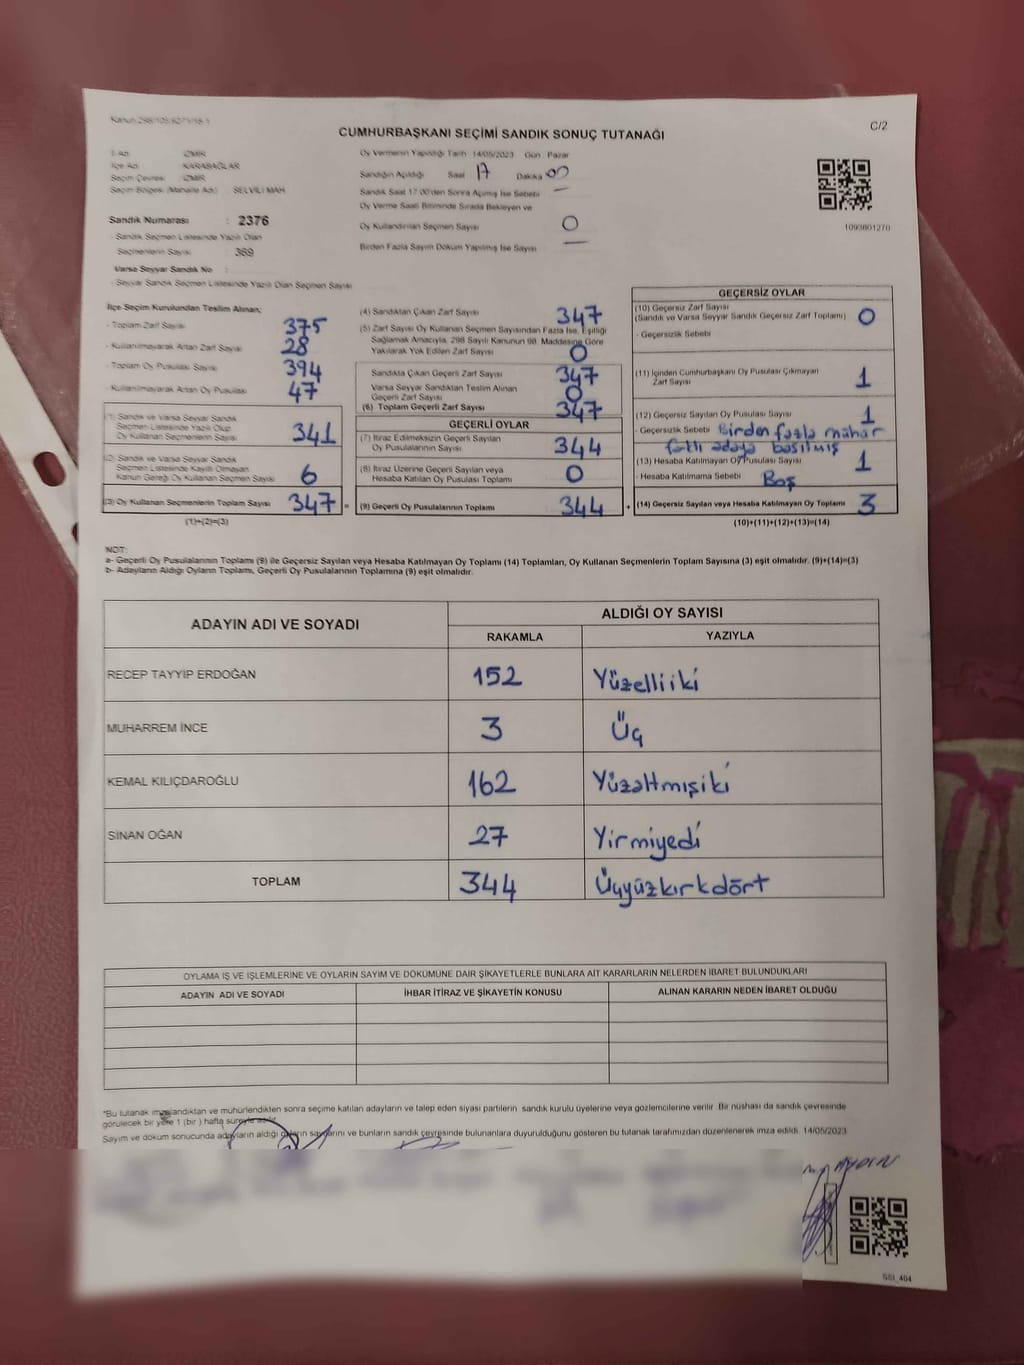 Kanun 298/105.627
C/2
CUMHURBAŞKANI SEÇİMİ SANDIK SONUÇ TUTANAĞI
İl Adı : İZMİR
İlçe Adı : KARABAĞLAR
Seçim Çevresi : İZMİR
Seçim Bölgesi (Mahalle Adı) : SELVİLİ MAH
Sandık Numarası : 2376
- Sandık Seçmen Listesinde Yazılı Olan
Seçmenlerin Sayısı : 369
Varsa Seyyar Sandık No :
- Seyyar Sandık Seçmen Listesinde Yazılı Olan Seçmen Sayısı
Oy Vermenin Yapıldığı Tarih 14/05/2023 Gün Pazar
Sandığın Açıldığı Saat 17 Dakika 00
Sandık Saat 17:00'den Sonra Açılmış İse Sebebi —
Oy Verme Saati Bitiminde Sırada Bekleyen ve
Oy Kullandırılan Seçmen Sayısı 0
Birden Fazla Sayım Döküm Yapılmış İse Sayısı —
1093801270
İlçe Seçim Kurulundan Teslim Alınan;
- Toplam Zarf Sayısı 375
- Kullanılmayarak Artan Zarf Sayısı 28
- Toplam Oy Pusulası Sayısı 394
- Kullanılmayarak Artan Oy Pusulası 47
(1) Sandık ve Varsa Seyyar Sandık
Seçmen Listesinde Yazılı Olup
Oy Kullanan Seçmenlerin Sayısı 341
(2) Sandık ve Varsa Seyyar Sandık
Seçmen Listesinde Kayıtlı Olmayan
Kanun Gereği Oy Kullanan Seçmen Sayısı 6
(3) Oy Kullanan Seçmenlerin Toplam Sayısı 347 =
(1)+(2)=(3)
(4) Sandıktan Çıkan Zarf Sayısı 347
(5) Zarf Sayısı Oy Kullanan Seçmen Sayısından Fazla İse, Eşitliği
Sağlamak Amacıyla, 298 Sayılı Kanunun 98. Maddesine Göre
Yakılarak Yok Edilen Zarf Sayısı 0
Sandıkta Çıkan Geçerli Zarf Sayısı 347
Varsa Seyyar Sandıktan Teslim Alınan
Geçerli Zarf Sayısı 0
(6) Toplam Geçerli Zarf Sayısı 347
GEÇERLİ OYLAR
(7) İtiraz Edilmeksizin Geçerli Sayılan
Oy Pusulalarının Sayısı 344
(8) İtiraz Üzerine Geçerli Sayılan veya
Hesaba Katılan Oy Pusulası Toplamı 0
(9) Geçerli Oy Pusulalarının Toplamı 344 +
GEÇERSİZ OYLAR
(10) Geçersiz Zarf Sayısı
(Sandık ve Varsa Seyyar Sandık Geçersiz Zarf Toplamı) 0
- Geçersizlik Sebebi
(11) İçinden Cumhurbaşkanı Oy Pusulası Çıkmayan
Zarf Sayısı 1
(12) Geçersiz Sayılan Oy Pusulası Sayısı 1
- Geçersizlik Sebebi Birden fazla mühür
farklı adaya basılmış
(13) Hesaba Katılmayan Oy Pusulası Sayısı 1
- Hesaba Katılmama Sebebi Boş
(14) Geçersiz Sayılan veya Hesaba Katılmayan Oy Toplamı 3
(10)+(11)+(12)+(13)=(14)
NOT:
a- Geçerli Oy Pusulalarının Toplamı (9) ile Geçersiz Sayılan veya Hesaba Katılmayan Oy Toplamı (14) Toplamları, Oy Kullanan Seçmenlerin Toplam Sayısına (3) eşit olmalıdır. (9)+(14)=(3)
b- Adayların Aldığı Oyların Toplamı, Geçerli Oy Pusulalarının Toplamına (9) eşit olmalıdır.
ADAYIN ADI VE SOYADI
ALDIĞI OY SAYISI
RAKAMLA YAZIYLA
RECEP TAYYİP ERDOĞAN 152 Yüzelliiki
MUHARREM İNCE 3 Üç
KEMAL KILIÇDAROĞLU 162 Yüzaltmışiki
SİNAN OĞAN 27 Yirmiyedi
TOPLAM 344 Üçyüzkırkdört
OYLAMA İŞ VE İŞLEMLERİNE VE OYLARIN SAYIM VE DÖKÜMÜNE DAİR ŞİKAYETLERLE BUNLARA AİT KARARLARIN NELERDEN İBARET BULUNDUKLARI
ADAYIN ADI VE SOYADI İHBAR İTİRAZ VE ŞİKAYETİN KONUSU ALINAN KARARIN NEDEN İBARET OLDUĞU
*Bu tutanak imzalandıktan ve mühürlendikten sonra seçime katılan adayların ve talep eden siyasi partilerin sandık kurulu üyelerine veya gözlemcilerine verilir. Bir nüshası da sandık çevresinde
görülecek bir yere 1 (bir) hafta süreyle asılır.
Sayım ve döküm sonucunda adayların aldığı oyların sayılarını ve bunların sandık çevresinde bulunanlara duyurulduğunu gösteren bu tutanak tarafımızdan düzenlenerek imza edildi. 14/05/2023
SSI_404